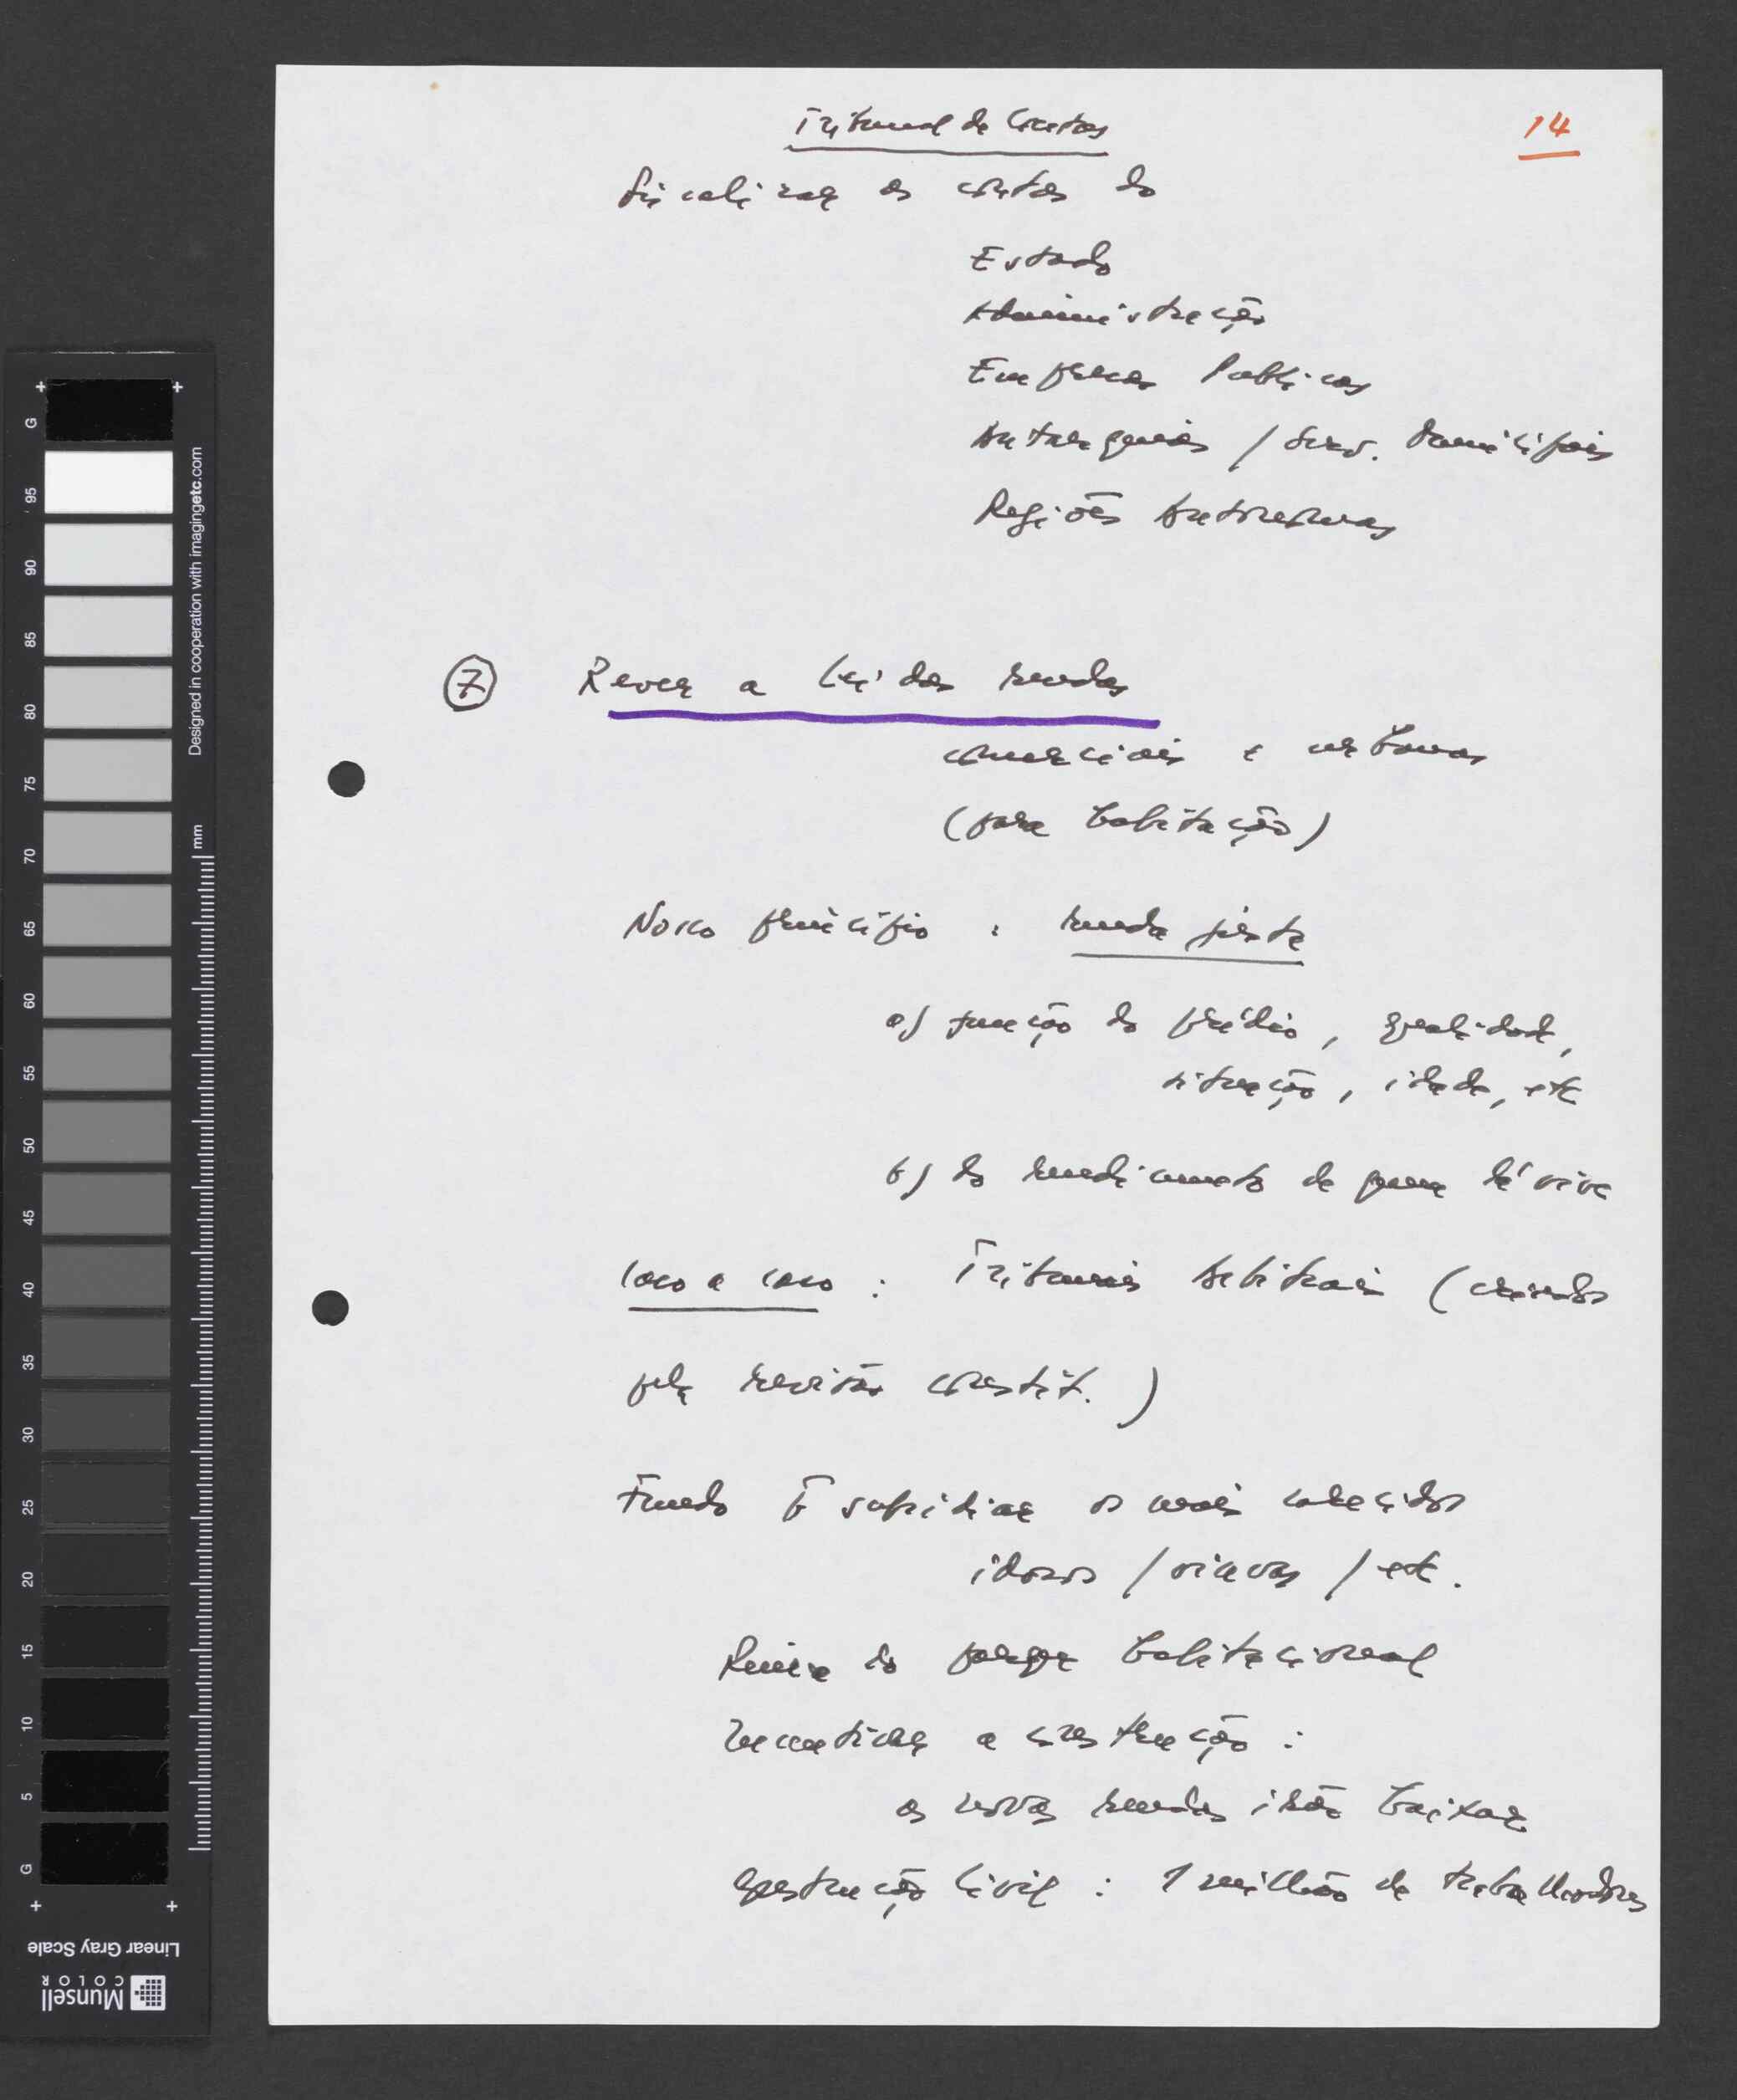 Tribunal de Contas
14
fiscalizar as contas do
Estado
Administração
Empresas Publicas
Autarquias / Serv. Municipais
Regiões Autonomas
7 Rever a Lei das rendas
comerciais e urbanas
(para habitação)
Novo principio : renda justa
a) função do prédio, qualidade,
situação, idade, etc
b) do rendimento de quem lá vive
Caso a caso : Tribunais Arbitrais (criados
pela revisão constit.)
Fundo p subsidiar os mais carecidos
idosos / viuvas / etc.
Ruina do parque habitacional
Incentivar a construção :
as novas rendas irão baixar
Construção Civil : 1 milhão de trabalhadores
G 95 90 85 80 75 70 65 60 55 50 45 40 35 30 25 20 15 10 5 G
Designed in cooperation with imagingetc.com
mm
Linear Gray Scale
Munsell
COLOR